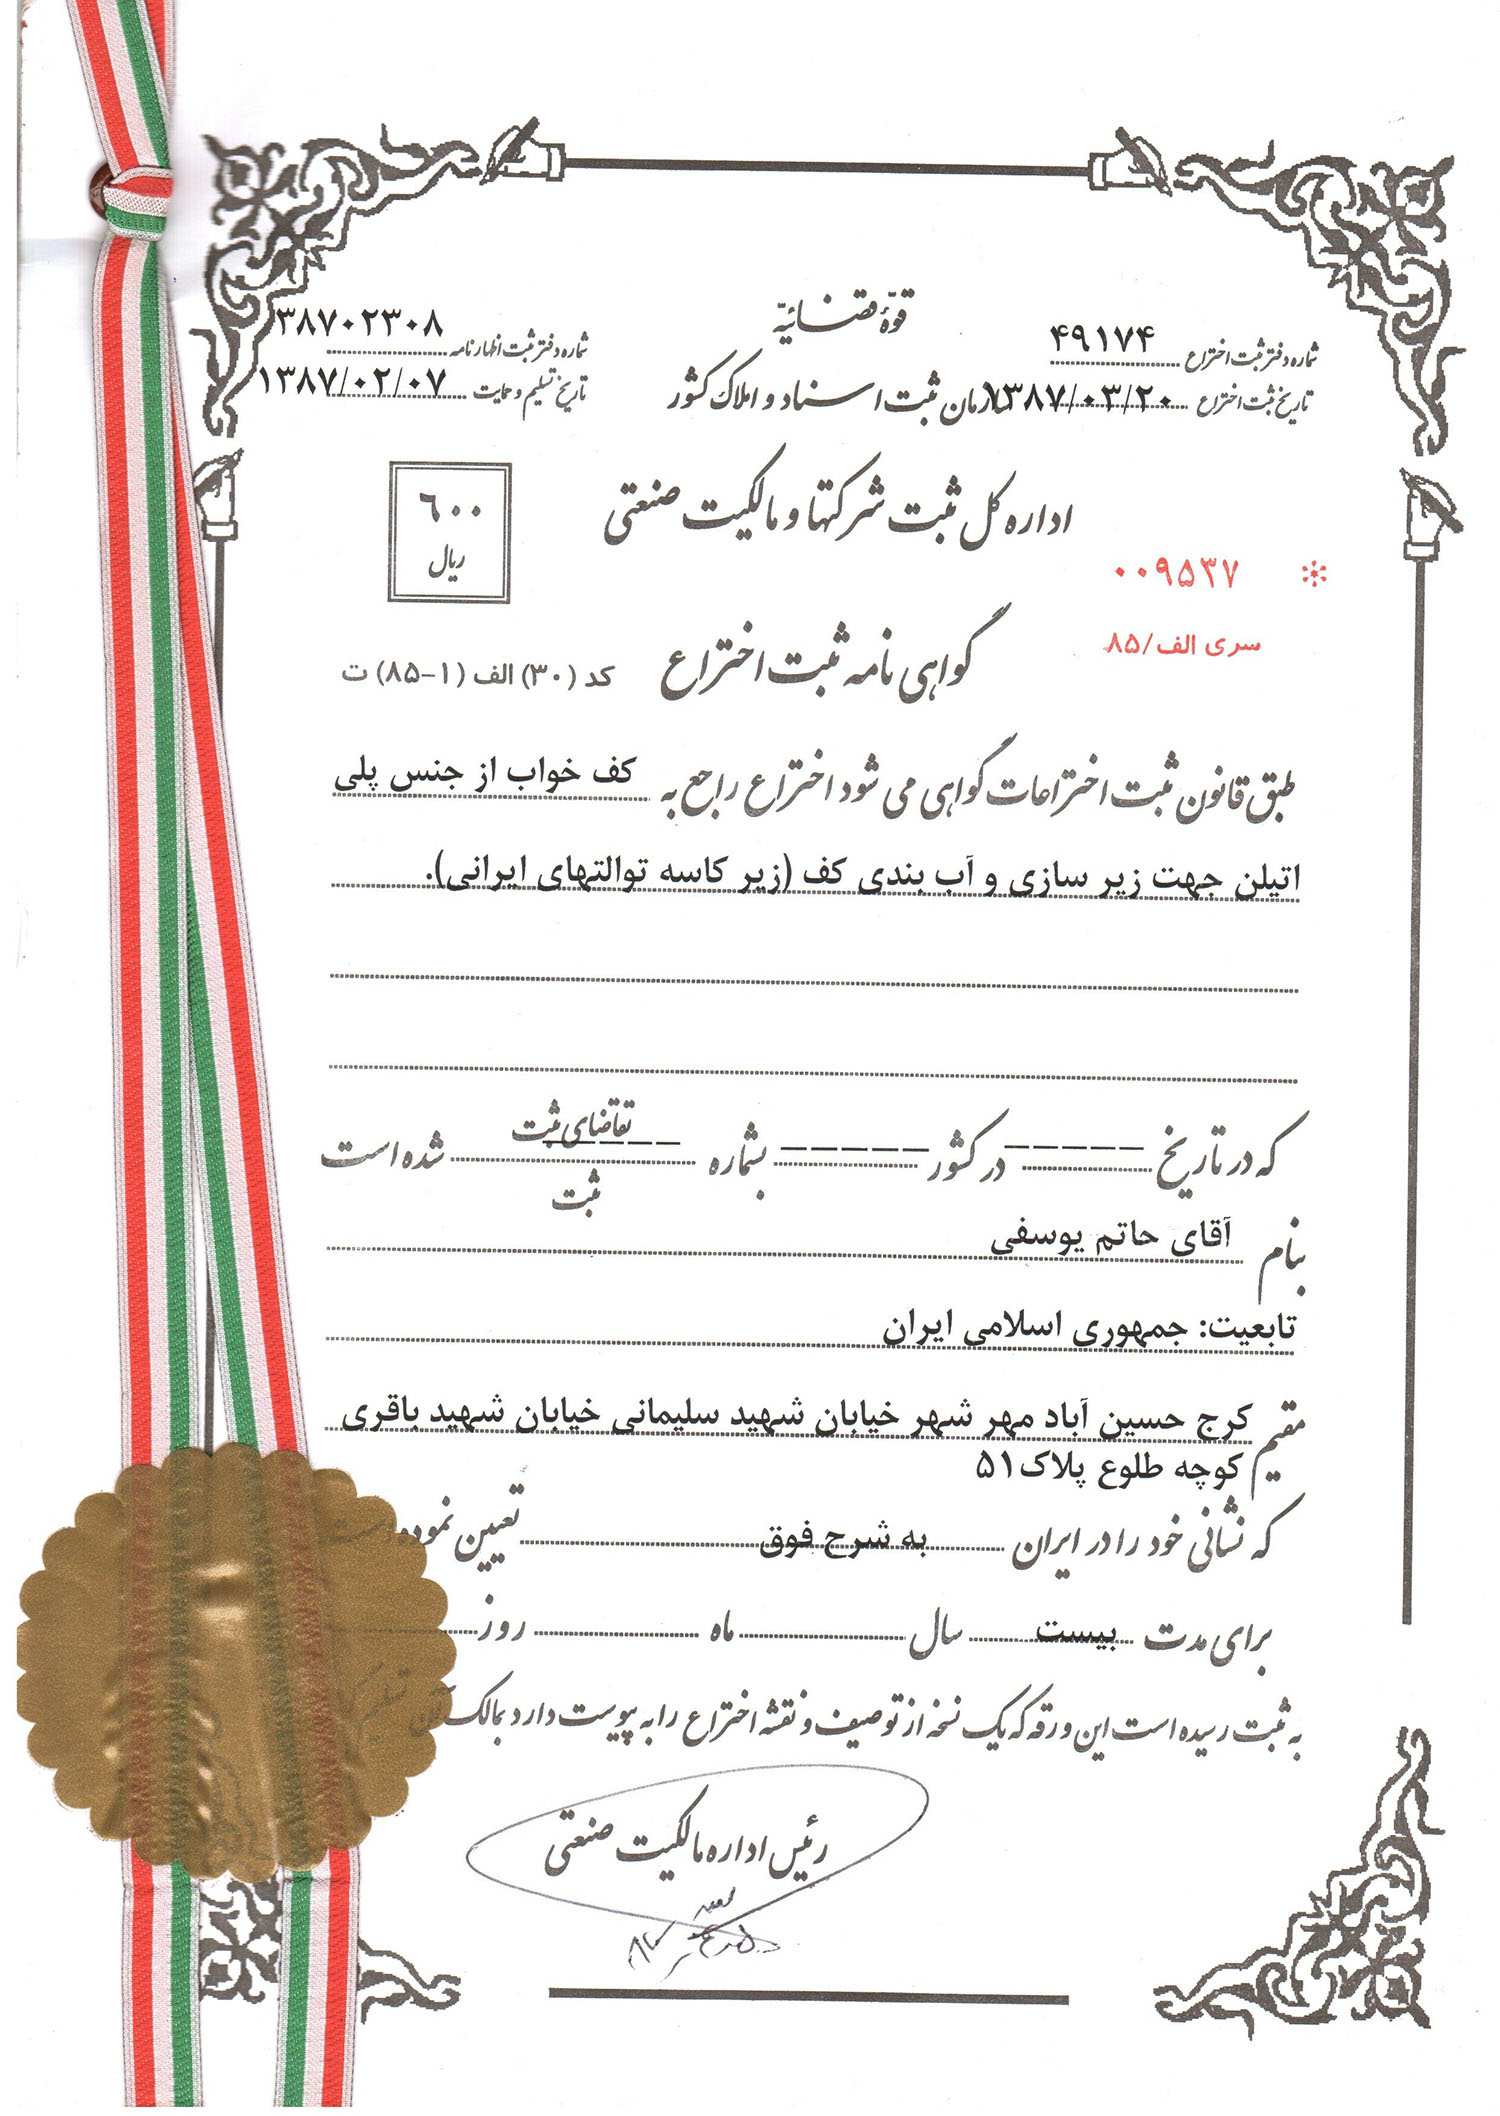 قوّهٔ قضائیّه
شماره دفتر ثبت اختراع ۴۹۱۷۴
شماره دفتر ثبت اظهارنامه ۳۸۷۰۲۳۰۸
تاریخ ثبت اختراع ۱۳۸۷/۰۳/۲۰
سازمان ثبت اسناد و املاک کشور
تاریخ تسلیم و حمایت ۱۳۸۷/۰۲/۰۷
اداره کل ثبت شرکتها و مالکیت صنعتی
۶۰۰
ریال
۰۰۹۵۳۷
سری الف/۸۵
گواهی نامه ثبت اختراع
کد (۳۰) الف (۱-۸۵) ت
طبق قانون ثبت اختراعات گواهی می شود اختراع راجع به کف خواب از جنس پلی
اتیلن جهت زیر سازی و آب بندی کف (زیر کاسه توالتهای ایرانی).
که در تاریخ ------ در کشور ------ بشماره ------ تقاضای ثبت
ثبت شده است
بنام آقای حاتم یوسفی
تابعیت: جمهوری اسلامی ایران
مقیم کرج حسین آباد مهر شهر خیابان شهید سلیمانی خیابان شهید باقری
کوچه طلوع پلاک۵۱
که نشانی خود را در ایران به شرح فوق تعیین نموده
برای مدت بیست سال ماه روز
به ثبت رسیده است این ورقه که یک نسخه از توصیف و نقشه اختراع را به پیوست دارد بمالک
رئیس اداره مالکیت صنعتی